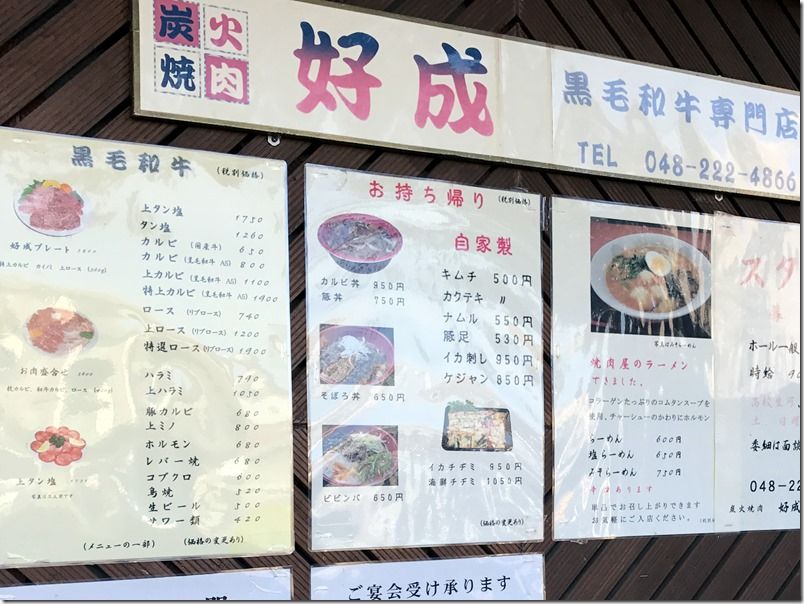 炭火
焼肉
好成
黒毛和牛専門店
TEL 048-222-4866
黒毛和牛 (税別価格)
好成プレート
特上カルビ カイノミ 上ロース
お肉盛合せ
上タン塩
上タン塩 1750
タン塩 1260
カルビ (国産牛) 650
カルビ (黒毛和牛 A5) 800
上カルビ (黒毛和牛 A5) 1100
特上カルビ (黒毛和牛 A5) 1900
ロース (リブロース) 740
上ロース (リブロース) 1200
特選ロース (リブロース) 1900
ハラミ 790
上ハラミ 1050
豚カルビ 680
上ミノ 800
ホルモン 680
レバー焼 680
コブクロ 600
鳥焼 520
生ビール 500
サワー類 420
(メニューの一部) (価格の変更あり)
お持ち帰り (税別価格)
カルビ丼 950円
豚丼 750円
そぼろ丼 650円
ビビンバ 650円
自家製
キムチ 500円
カクテキ 〃
ナムル 550円
豚足 530円
イカ刺し 950円
ケジャン 850円
イカチヂミ 950円
海鮮チヂミ 1050円
(価格の変更あり)
ご宴会受け承ります
写真はみそらーめん
焼肉屋のラーメン
できました。
コラーゲンたっぷりのコムタンスープを
使用、チャーシューのかわりにホルモン
らーめん 600円
塩らーめん 650円
みそらーめん 750円
辛口あります
単品でお召し上がりできます
お気軽にご入店ください。
スタ
ホール一般
時給 90
高校生可
土 日
委細は面談
048-22
炭火焼肉 好成